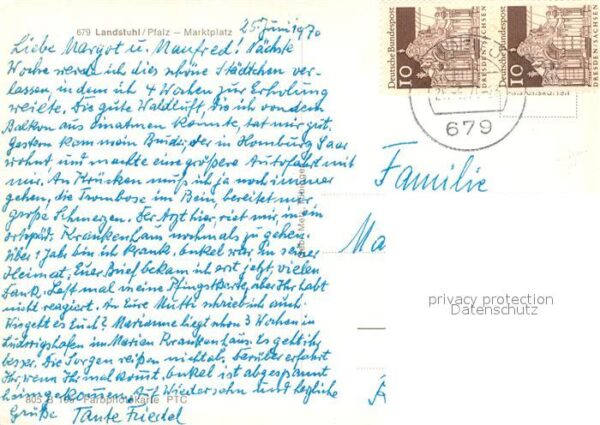 679 Landstuhl/Pfalz – Marktplatz
25 Juni 1970
Liebe Margot u. Manfred! Nächste
Woche werde ich dies schöne Städtchen ver-
lassen, in dem ich 4 Wochen zur Erholung
weilte. Die gute Waldluft, die ich von dem
Balkon aus einatmen konnte, tat mir gut.
Gestern kam mein Bruder, der in Homburg Saar
wohnt und machte eine größere Autofahrt mit
mir. An Krücken muß ich ja noch immer
gehen, die Trombose im Bein, bereitet mir
große Schmerzen. Der Arzt hier, riet mir, in ein
ortopäd. Krankenhaus nochmals zu gehen.
Über 1 Jahr bin ich krank. Onkel war in seiner
Heimat, Euer Brief bekam ich erst jetzt, vielen
Dank. Habt mal meine Pfingstkarte, aber Ihr habt
nicht reagiert. An Eure Mutti schrieb ich auch.
Wie geht es Euch? Marianne liegt schon 3 Wochen in
Ludwigshafen im Marien Krankenhaus. Es geht ihr
besser. Die Sorgen reißen nicht ab, darüber erfahrt
Ihr, wenn Ihr mal kommt. Onkel ist abgespannt
heimgekommen. Auf Wiedersehn und herzliche
Grüße Tante Friedel
Farbphotokarte PTC
Deutsche Bundespost
10
DRESDEN/SACHSEN
Deutsche Bundespost
10
DRESDEN/SACHSEN
679
Familie
Ma
privacy protection
Datenschutz